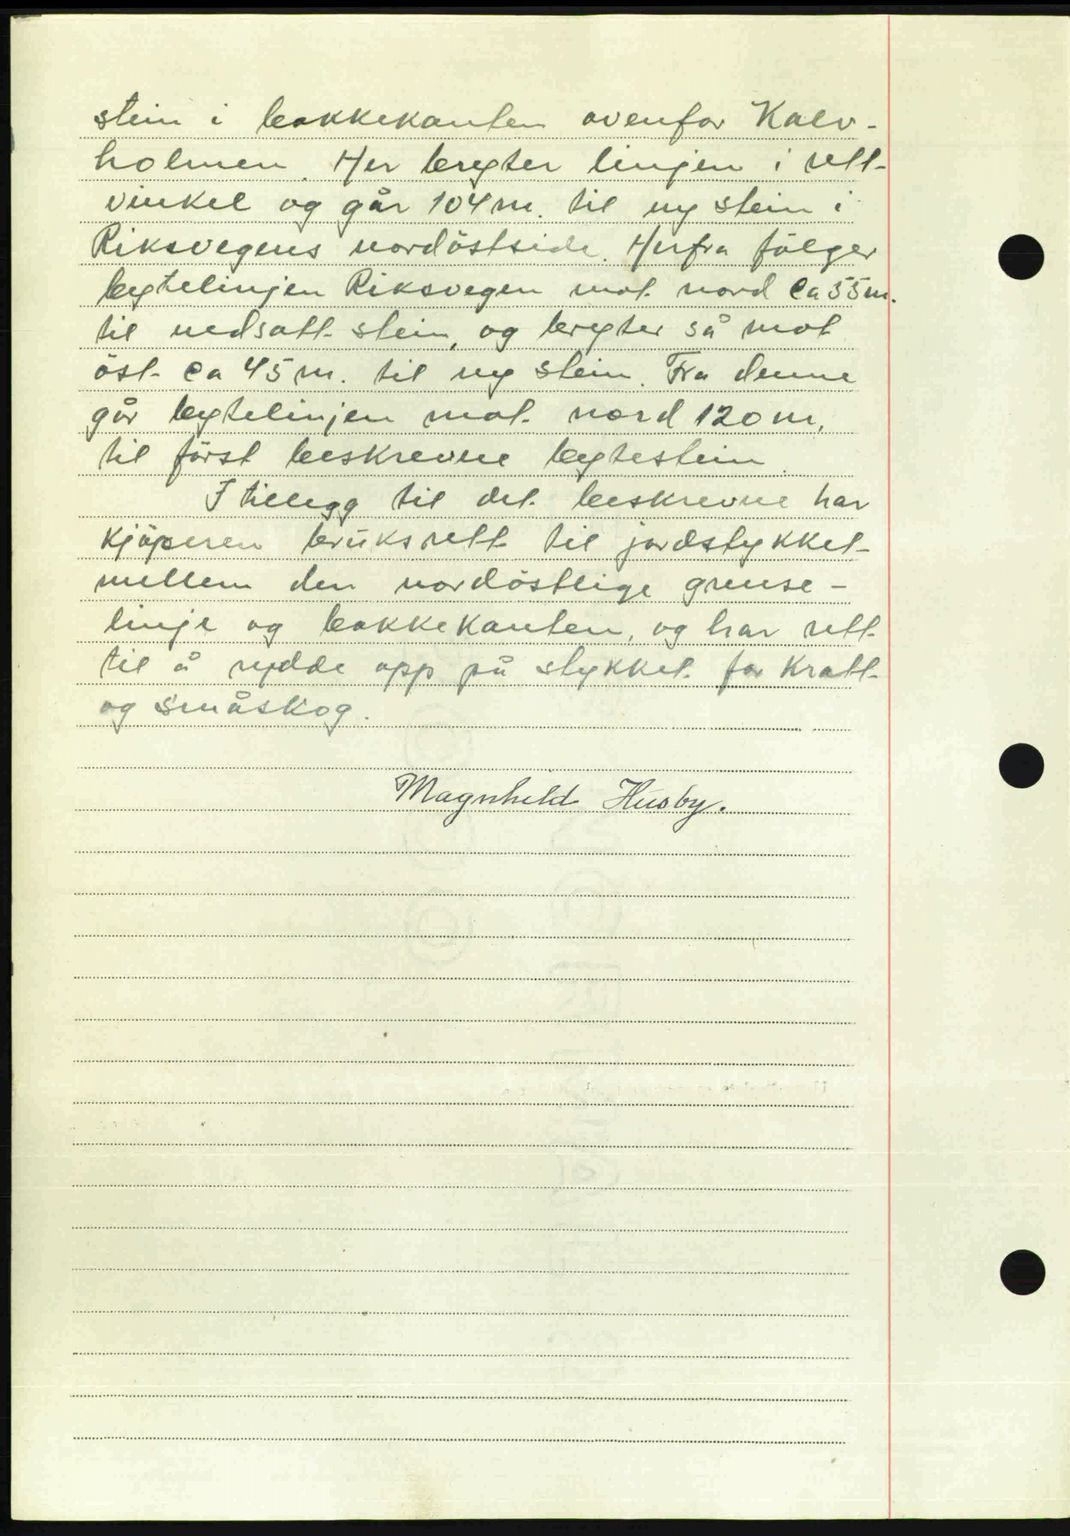 stein i bakkekanten ovenfor Kalv-
holmen. Her bryter linjen i rett-
vinkel og går 104 m. til ny stein i
Riksvegens nordöstside. Herfra fölger
bytelinjen Riksvegen mot nord ca 55 m.
til nedsatt stein, og bryter så mot
öst ca 45 m. til ny stein. Fra denne
går bytelinjen mot nord 120 m,
til först beskrevne bytestein.
I tillegg til det beskrevne har
kjöperen bruksrett til jordstykket
mellem den nordöstlige grense-
linje og bakkekanten, og har rett
til å rydde opp på stykket for Kratt
og småskog.
Magnhild Husby.